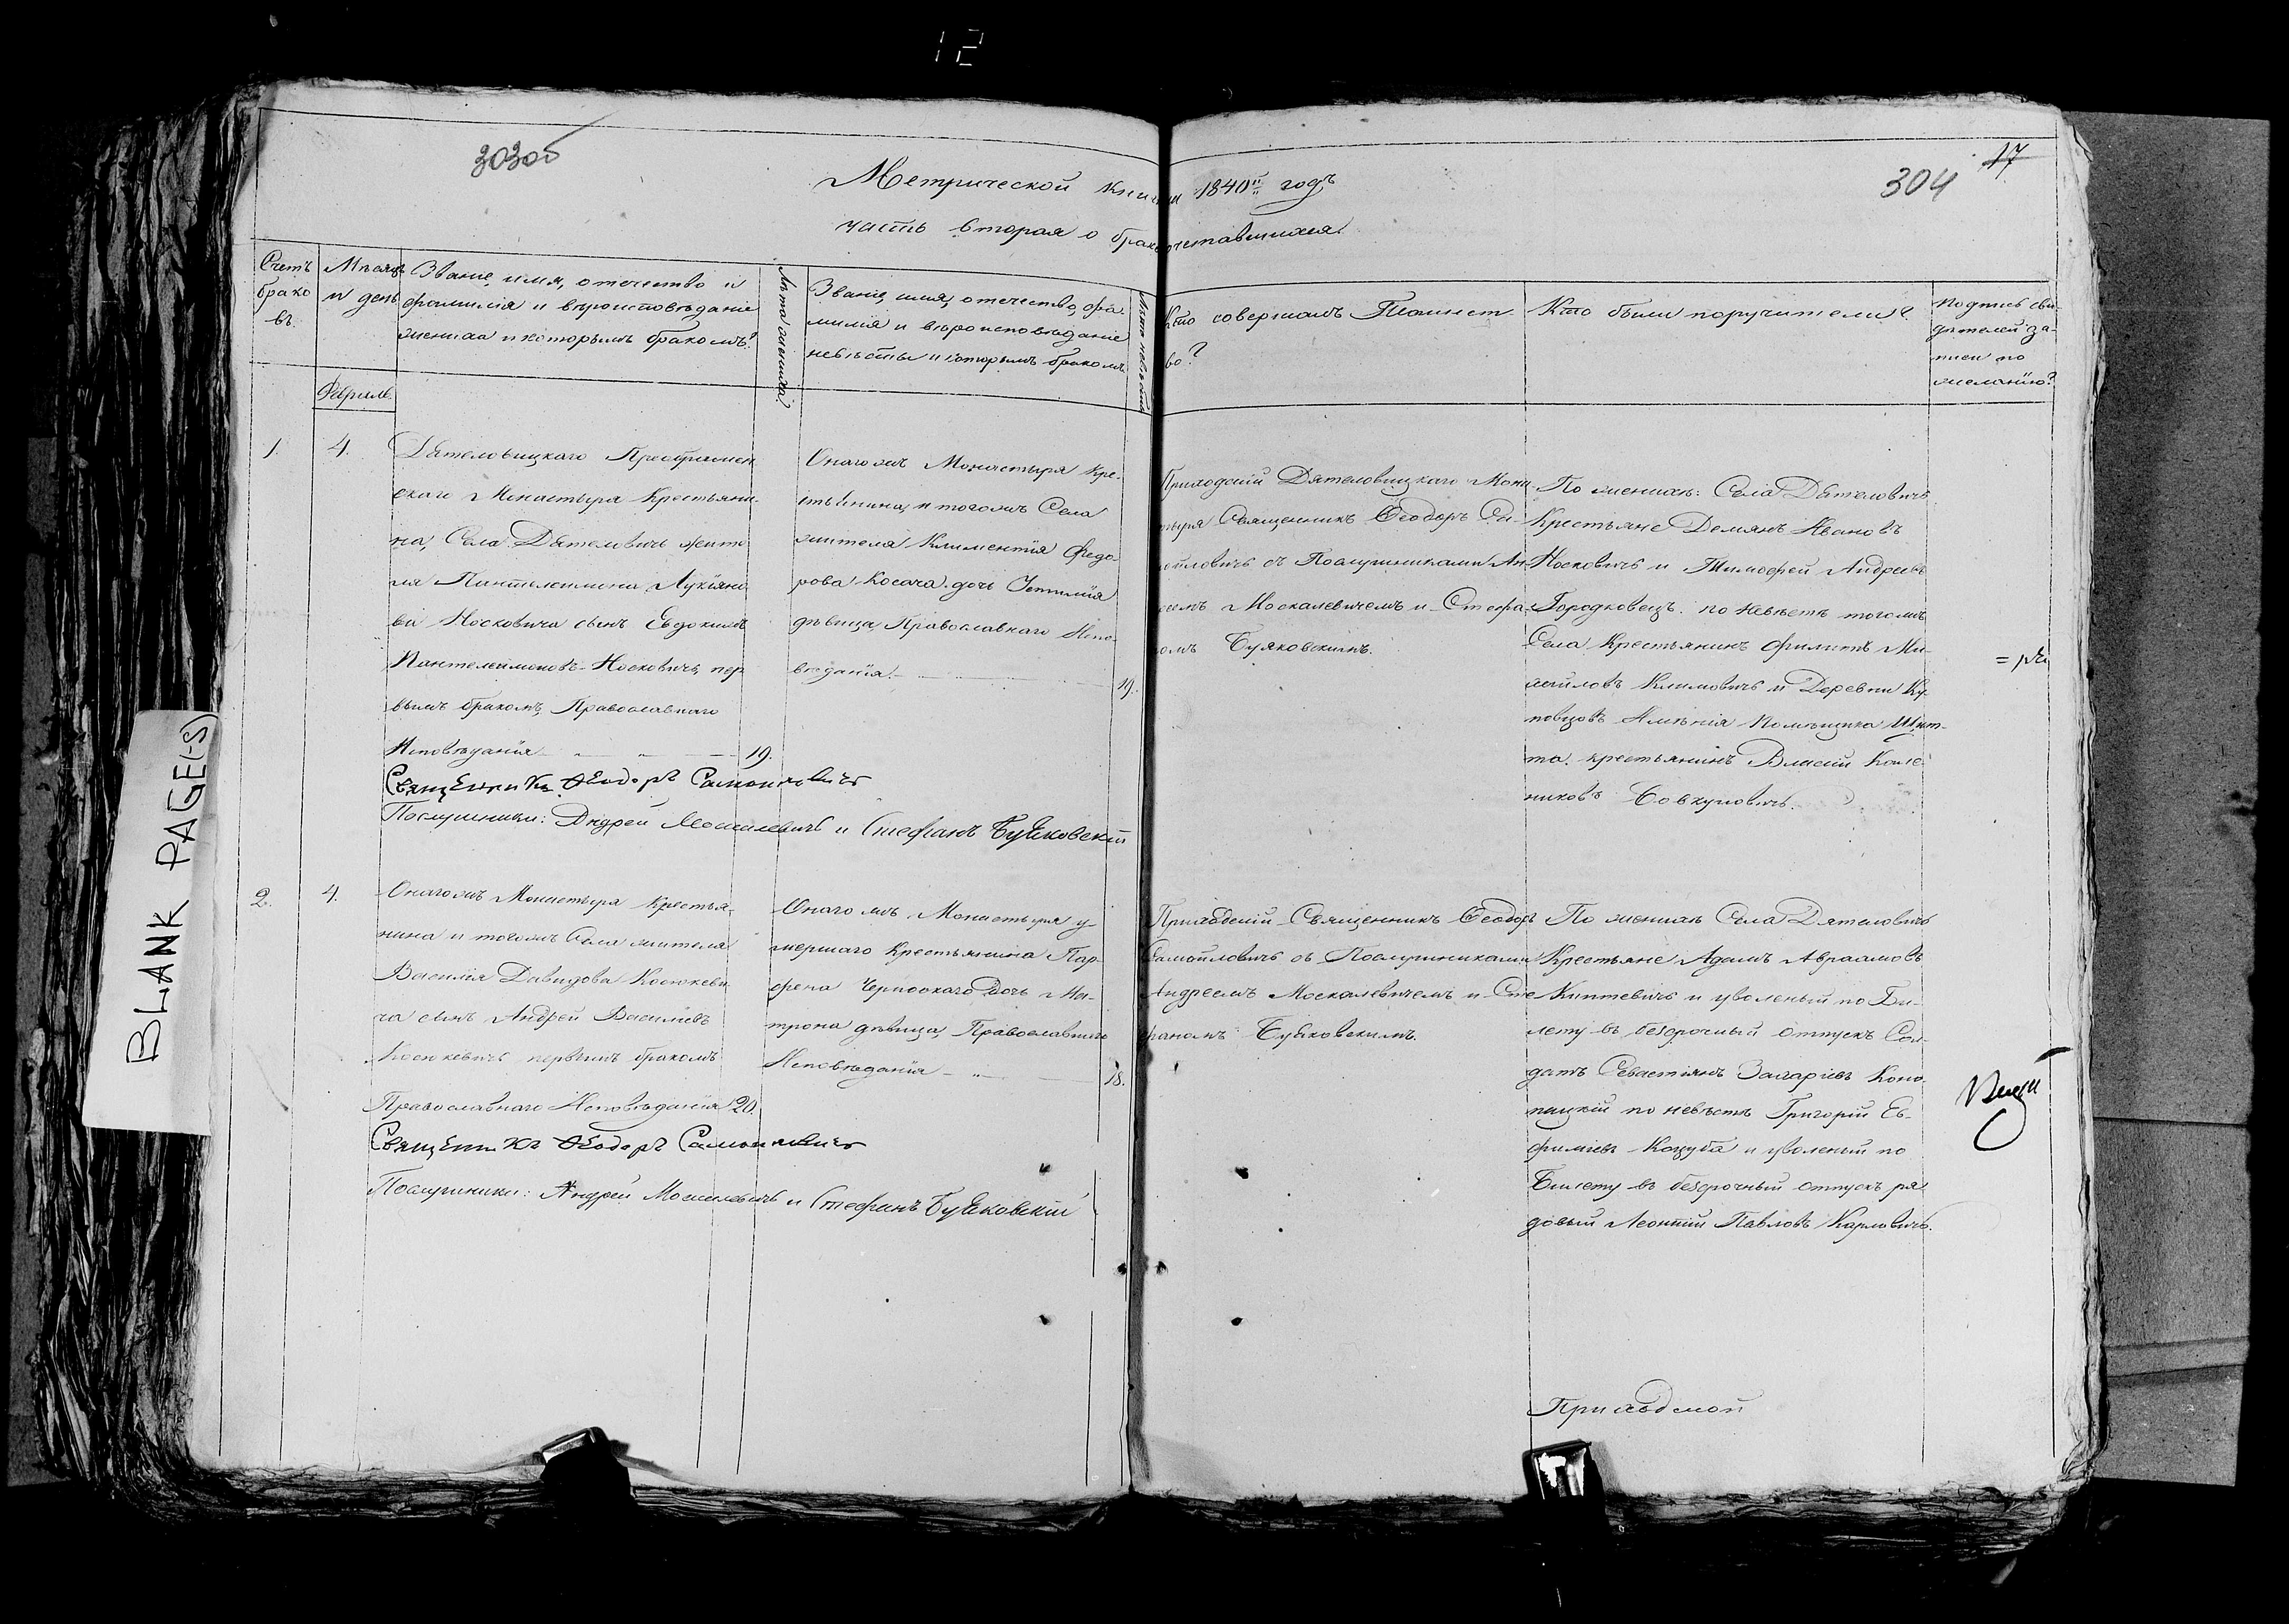 12
303об
17
304
Метрической книги 1840го годъ
часть вторая о бракосочетавшихся.
Счетъ
брако
въ.
Мѣсяцъ
и день
Званіе, имя, отечество и
фамилія и вѣроисповѣданіе
жениха и которымъ бракомъ?
Лѣта жениха.
Званіе, имя, отечество, фа-
милія и вѣроисповѣданіе
невѣсты и которымъ бракомъ
Лѣта невѣсты
Кто совершалъ Таинст
во?
Кто были поручители?
Подпись сви-
дѣтелей за-
писи по
желанію?
Февраль.
1.
4.
Дятеловицкаго Преображен
скаго Монастыря Крестьяни-
на, Села Дятеловичь жите
ля Пантелеимона Лукіяно
ва Носковича сынъ Евдокимъ
Пантелеимоновъ Носковичъ, пер
вымъ бракомъ, Православнаго
Исповѣданія 19.
Онагожъ Монастыря Кре-
стьянина, и тогожъ Села
жителя Климентія Федо-
рова Косача дочь
дѣвица, Православнаго Испо-
вѣданія. 19.
Приходскій Дятеловицкаго Мона
стыря Священникъ Феодоръ Са-
мойловичъ съ Послушниками Ан-
реемъ Москалевичемъ и Стефа-
номъ Буяковскимъ.
По женихѣ: Села Дятеловичь
Крестьяне Демянъ Ивановъ
Носковичъ и Тимофей Андреевъ
Городковецъ. по невѣстѣ тогожъ
Села Крестьянинъ Филипъ Ми-
хайловъ Климовичъ и Деревни Ку-
повцовъ Имѣнія Помѣщика
та. крестьянинъ Власій
никовъ Бовкуновичъ.
Священникъ Феодоръ Самойловичъ
Послушники: Андрей Москалевичъ и Стефанъ Буяковскій
2.
4.
Онагожъ Монастыря Крестья-
нина и тогожъ Села жителя
Василія Давидова Косюкеви
ча сынъ Андрей Василіевъ
Косюкевичъ первымъ бракомъ
Православнаго Исповѣданія 20.
Онагожъ Монастыря у-
мершаго Крестьянина Пар-
фена Черноокаго Дочь Ма-
трона дѣвица, Православнаго
Исповѣданія 18.
Приходскій Священникъ Феодоръ
Самойловичъ съ Послушниками
Андреемъ Москалевичемъ и Сте
фаномъ Буяковскимъ.
По женихѣ Села Дятеловичь
Крестьяне Адамъ Авраамовъ
Киптевичъ и уволеный по Би-
лету въ безсрочный отпускъ Сол-
датъ Севастіянъ Захаріевъ Коно-
пацкій по невѣстѣ Григорій Ев-
фиміевъ Коцуба и уволеный по
Билету въ безсрочный отпускъ ря
довый Леонтій Павловъ Карловичъ.
Священникъ Феодоръ Самойловичъ
Послушники: Андрей Москалевичъ и Стефанъ Буяковскій
Приходской
BLANK PAGE(-S)